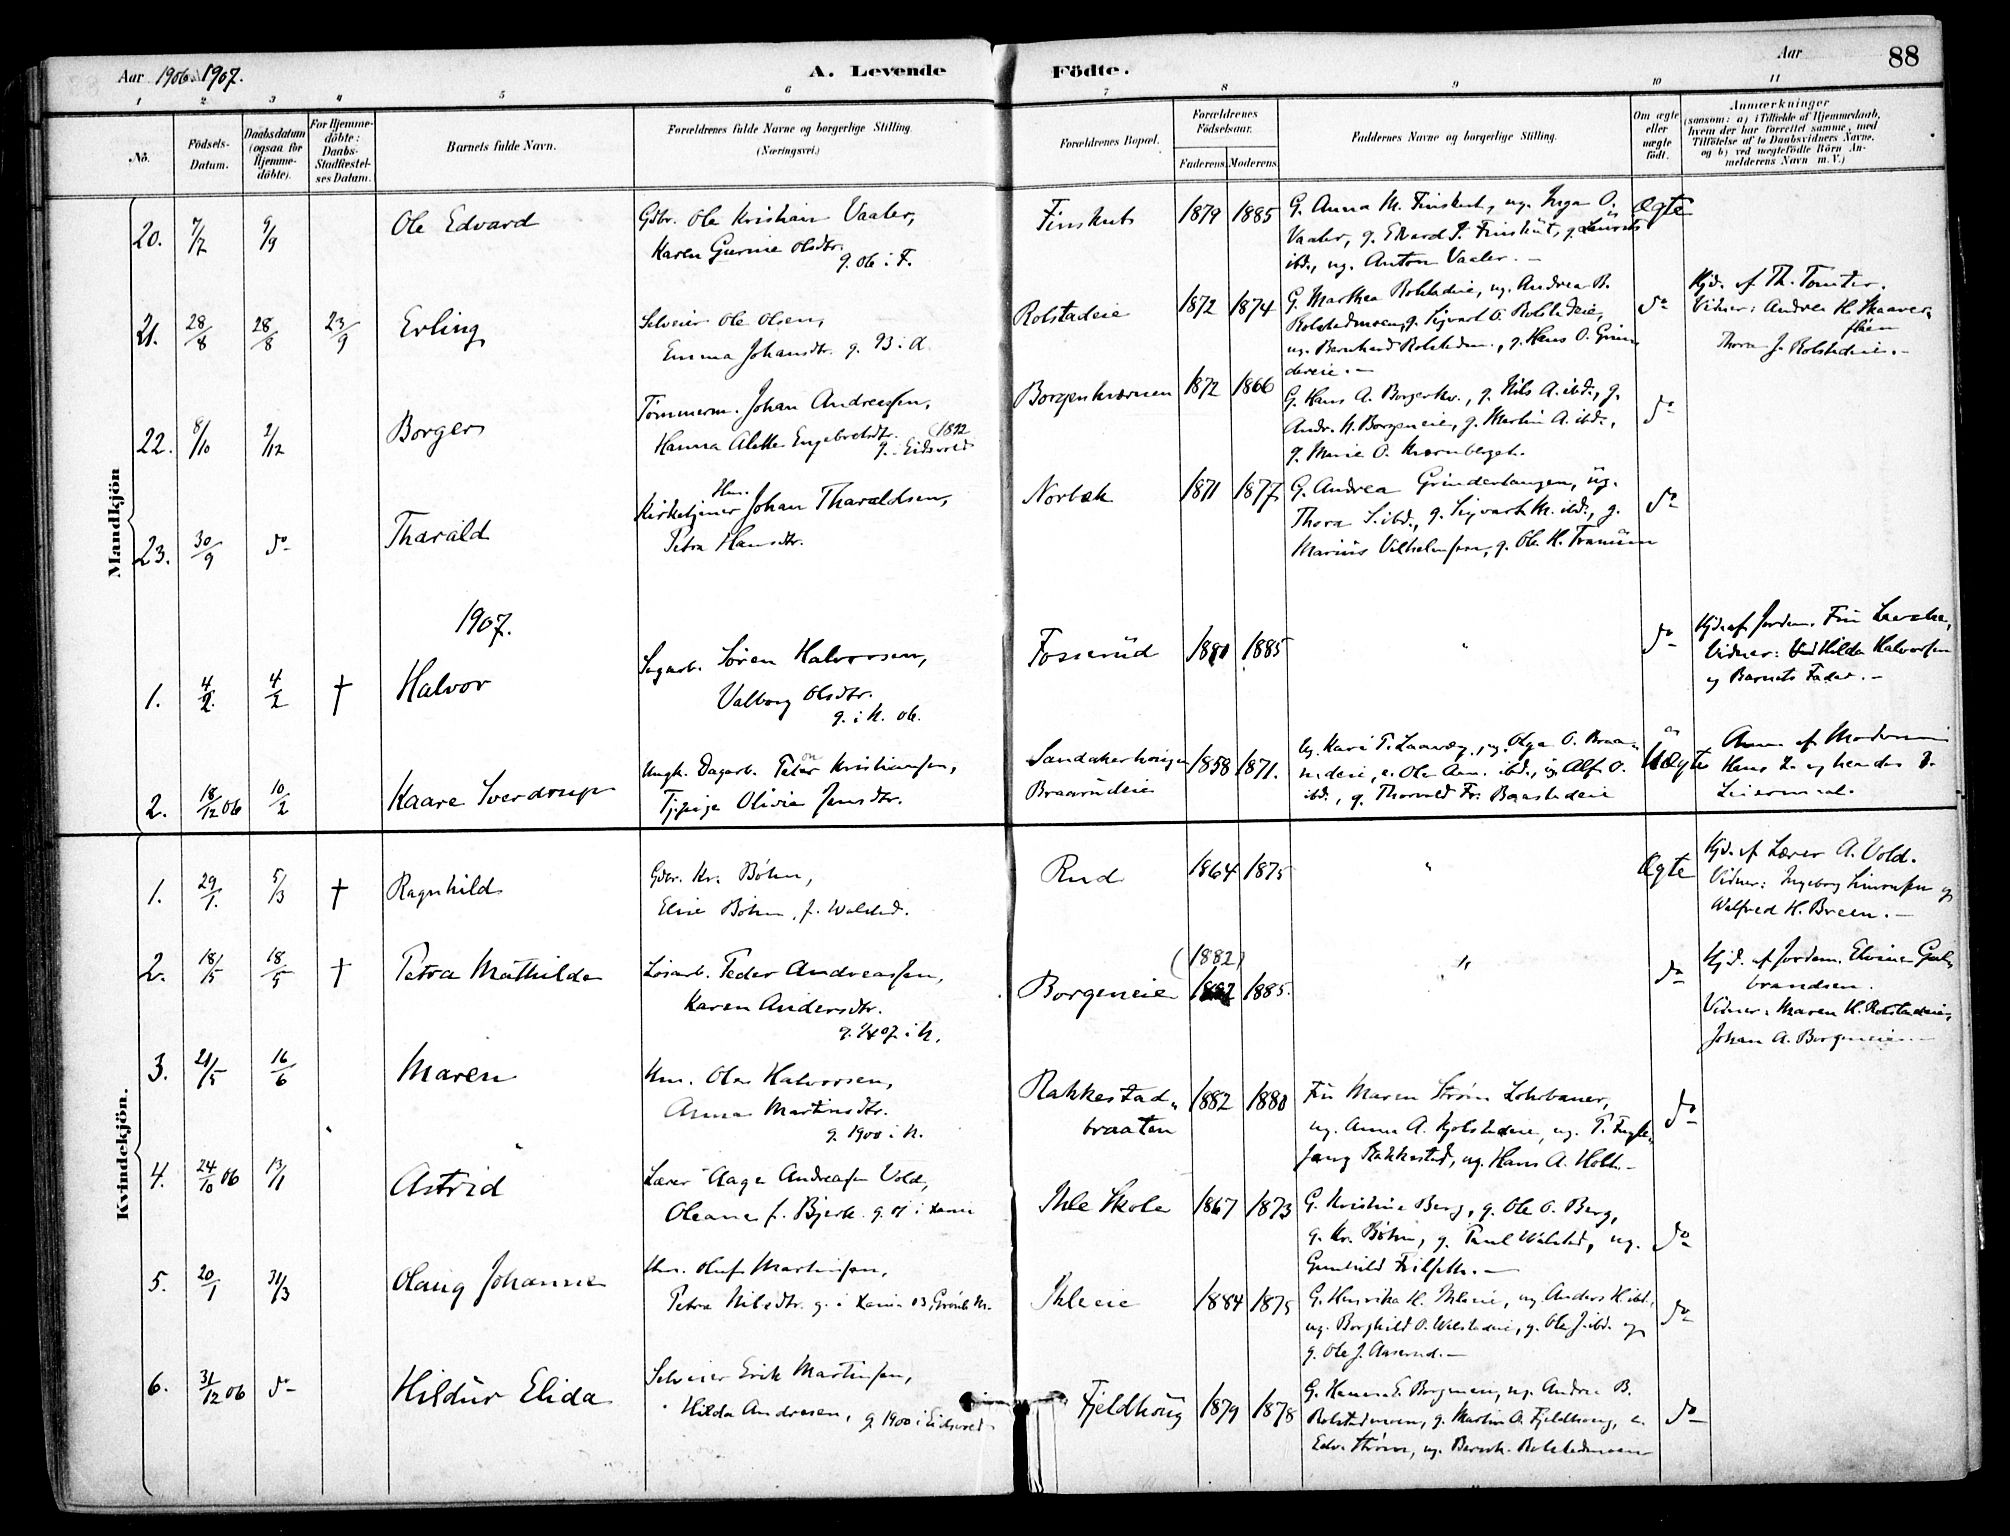 Aar 1906. 1907.
A. Levende Födte.
Aar
88
1 2 3 4 5 6 7 8 9 10 11
No.
Födsels-Datum.
Daabsdatum (ogsaa for Hjemme-döbte).
For Hjemme-döbte: Daabs-Stadfæstel-ses Datum.
Barnets fulde Navn.
Forældrenes fulde Navne og borgerlige Stilling. (Næringsvei.)
Forældrenes Bopæl.
Forældrenes Födselsaar.
Faderens. Moderens.
Faddernes Navne og borgerlige Stilling.
Om ægte eller uægte födt.
Anmærkninger
(saasom: a) i Tilfælde af Hjemmedaab,
hvem der har forrettet samme, med
Tilföielse af to Daabsvidners Navne,
og b) ved uægtefödte Börn An-
melderens Navn m. V.)
Mandkjön
20. 7/7 9/9 Ole Edvard
Gdbr. Ole Kristian Vaaler,
Karen Gurine Olsdtr.
g. 06 i F.
Finskut 1879 1885
G. Anna M. Finskut, ug. Inga O.
Vaaler, g. Edvard P. Finskut, g.
ibd., ug. Anton Vaaler. –
Ægte
21. 28/8 28/8 23/9 Erling
Selveier Ole Olsen,
Emma Johansdtr. g. 93 i A.
Rolstadeie 1872 1874
G. Marthea Rolstadeie, ug. Andrea B.
Rolstadmoen, g. Sigvart O. Rolstadeie,
ug. Bernhard Rolstadm., g. Hans O. Grin
dereie. –
do
Hjd. af Th. Tomter.
Vidner: Andrea H. Skaaver
Thora J. Rolstadeie. –
22. 8/10 2/12 Borger
Tömmerm. Johan Andreassen,
Hanna Alette Engebretsdtr.
g. Eidsvold (1892
Borgenkværnen 1872 1866
G. Hans A. Borgenkv., g. Nils A. ibd., g.
Andr. H. Borgeneie, g. Martin A. ibd.,
g. Marie O. Kværnberget.
do
23. 30/9 do Tharald
Hm.
Kirketjener Johan Tharaldsen,
Petra Hansdtr.
Norbæk 1871 1877
G. Andrea Grindertangen, ug.
Thora S. ibd., g. Sigvart M. ibd., g.
Marius Vilhelmsen, g. Ole H.
do
1907.
1. 4/2. 4/2 † Halvor
Sagarb. Sören Halvorsen,
Valborg Olsdtr.
g. i N. 06.
Fosserud 1880 1885
"
do
Hjd. af Jordem. Fru Lerche,
Vidner: Hilda Halvorsen
og Barnets Fader. –
2. 18/12 06 10/2 Kaare Sverdrup
Ungk. Dagarb. Peter Kristiansen,
Tj.pige Olivia Jensdtr.
Sandakerhougen
Braarudeie
1858 1871.
Ug. Kari T. Laaveg, ug. Olga O. Braa-
rudeie, e. Ole Am. ibd., ug. Alf O.
ibd., g. Thorvald Fr. Baastadeie
Uægte
Anm. af Moderen
Kvindekjön.
1. 29/1. 5/3 † Ragnhild
Gdbr. Kr. Böhn,
Elise Böhn, f. Wolstad.
Rud 1864 1875
"
Ægte
Hjd. af Lærer A. Vold.
Vidner: Ingeborg Simonsen og
Walfred H. Breen. –
2. 18/5 18/5 † Petra Mathilde
Lösarb. Peder Andreassen,
Karen Andersdtr.
g. 1/4 07 i N.
Borgeneie (1882) 1885.
"
do
Hjd. af Jordem. Elvina Gul-
brandsen.
Vidner: Maren K. Rolstadeie,
Johan A. Borgeneie
3. 21/5 16/6 Maren
Hm. Ole Halvorsen,
Anna Martinsdtr.
g. 1900 i N.
Rakkestad-
braaten
1882 1880
Fru Maren Ström Lohrbauer,
ug. Anna A. Rolstadeie, ug. P.
Rakkestad, ug. Hans A. Holt. –
do
4. 24/10 06 13/1 Astrid
Lærer Aage Andreassen Vold,
Oleane f. Bjerk. g. 01 i
Ihle Skole 1867 1873
G. Kristine Berg, g. Ole O. Berg,
g. Kr. Böhn, g. Paul Wolstad, ug.
Gunhild Frilseth. –
do
5. 20/1 31/3 Olaug Johanne
Hm. Oluf Martinsen,
Petra Nilsdtr. g. i 03,
Ihleeie 1884 1875
G. Henrika H. Ihleeie, ug. Anders H. ibd.,
ug. Borghild O. Wolstadeie, g. Ole J. ibd. og
g. Ole J. Aaserud. –
do
6. 31/12 06 do Hildur Elida
Selveier Erik Martinsen,
Hilda Andresen, g. 1900 i Eidsvold
Fjeldhoug 1879 1878
G. Hanna E. Borgeneie, ug. Andrea B.
Rolstadmoen, g. Martin A. Fjeldhoug, e.
Edv. Ström, ug. Bernh. Rolstadmoen
do